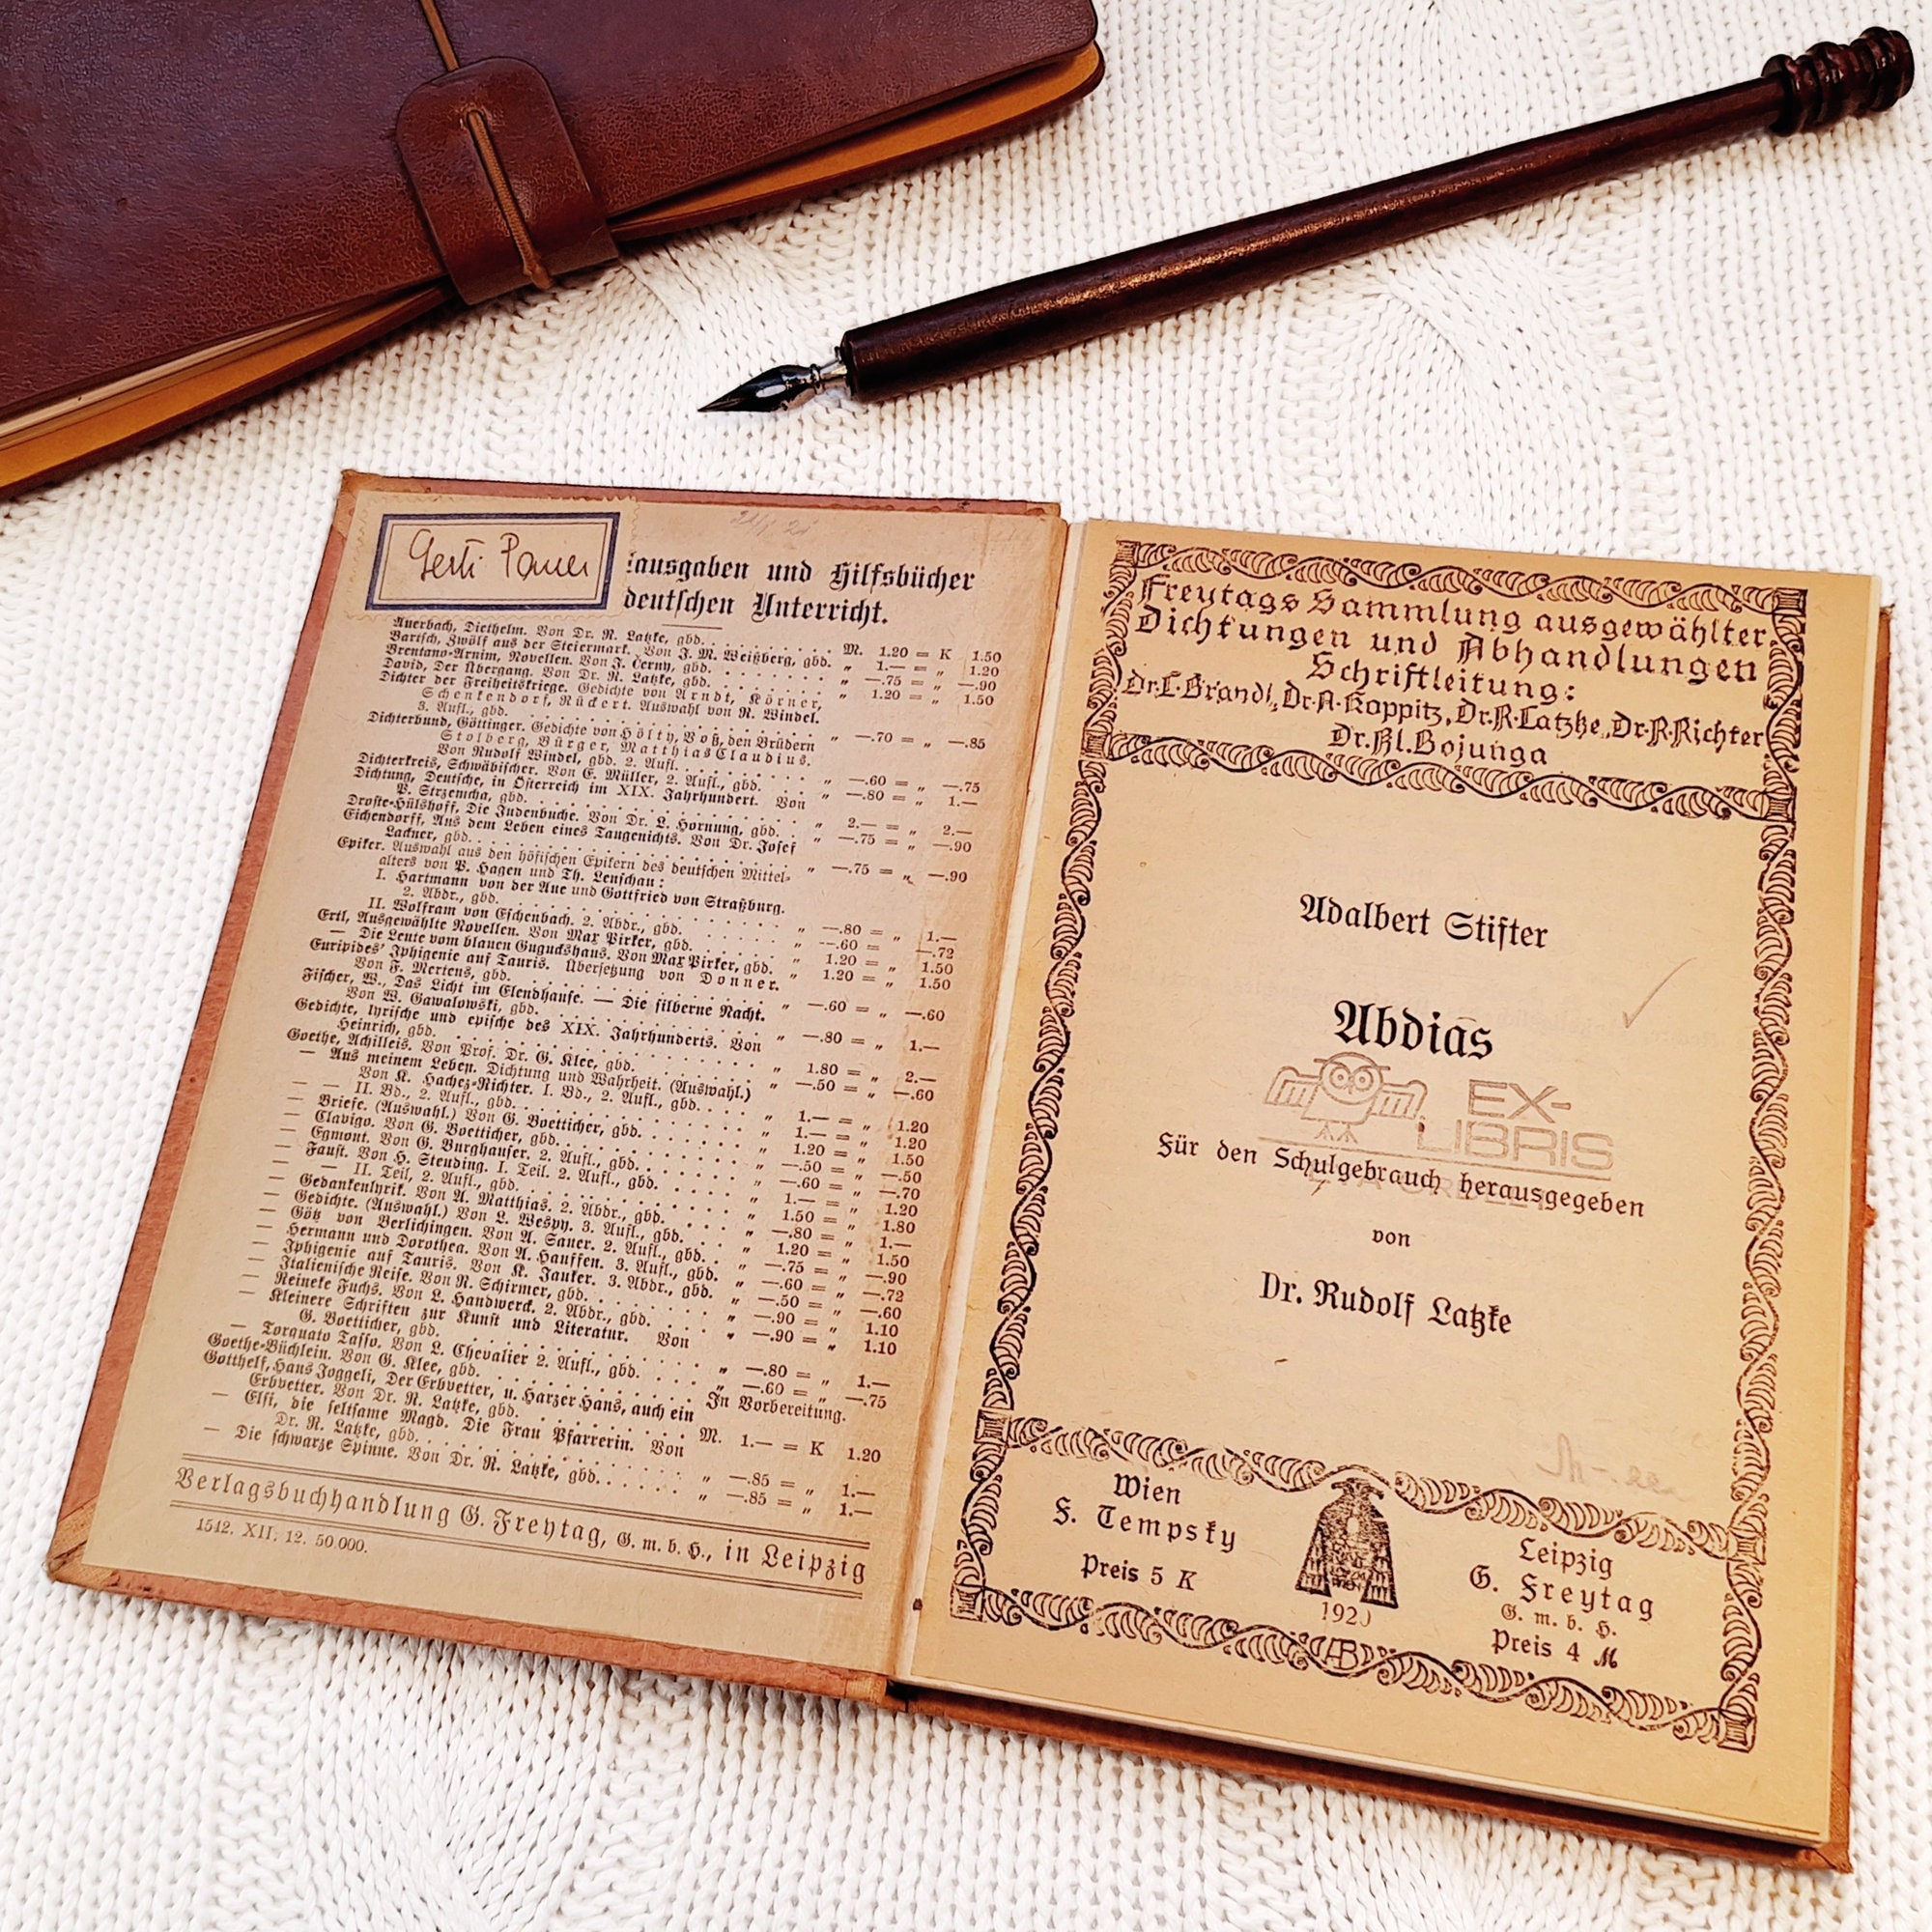 Gerti Pauer
ausgaben und Hilfsbücher
deutschen Unterricht.
Auerbach, Diethelm. Von Dr. R. Latzke, gbd. . . . . . . . . . . M. 1.20 = K 1.50
Bartsch, Zwölf aus der Steiermark. Von J. M. Weißberg, gbd. „ 1.— = „ 1.20
Brentano-Arnim, Novellen. Von J. Černy, gbd. . . . . . . . . „ —.75 = „ —.90
David, Der Übergang. Von Dr. R. Latzke, gbd. . . . . . . . . „ 1.20 = „ 1.50
Dichter der Freiheitskriege. Gedichte von Arndt, Körner,
Schenkendorf, Rückert. Auswahl von R. Windel.
3. Aufl., gbd. . . . . . . . . . . . . „ —.70 = „ —.85
Dichterbund, Göttinger. Gedichte von Hölty, Voß, den Brüdern
Stolberg, Bürger, Matthias Claudius.
Von Rudolf Windel, gbd. 2. Aufl. . . . . . . . „ —.60 = „ —.75
Dichterkreis, Schwäbischer. Von E. Müller, 2. Aufl., gbd. . . „ —.80 = „ 1.—
Dichtung, Deutsche, in Österreich im XIX. Jahrhundert. Von
P. Strzemcha, gbd. . . . . . . . . . . „ 2.— = „ 2.—
Droste-Hülshoff, Die Judenbuche. Von Dr. L. Hornung, gbd. . „ —.75 = „ —.90
Eichendorff, Aus dem Leben eines Taugenichts. Von Dr. Josef
Lackner, gbd. . . . . . . . . . . . „ —.75 = „ —.90
Epiker. Auswahl aus den höfischen Epikern des deutschen Mittel-
alters von P. Hagen und Th. Lenschau:
I. Hartmann von der Aue und Gottfried von Straßburg.
2. Abdr., gbd. . . . . . . . . . . . „ —.80 = „ 1.—
II. Wolfram von Eschenbach. 2. Abdr., gbd. . . . . . „ —.60 = „ —.72
Ertl, Ausgewählte Novellen. Von Max Pirker, gbd. . . . . . „ 1.20 = „ 1.50
— Die Leute vom blauen Guguckshaus. Von Max Pirker, gbd. „ 1.20 = „ 1.50
Euripides' Iphigenie auf Tauris. Übersetzung von Donner.
Von F. Mertens, gbd. . . . . . . . . . „ —.60 = „ —.60
Fischer, W., Das Licht im Elendhause. — Die silberne Nacht.
Von W. Gawalowski, gbd. . . . . . . . . „ —.80 = „ 1.—
Gedichte, lyrische und epische des XIX. Jahrhunderts. Von
Heinrich, gbd. . . . . . . . . . . . „ 1.80 = „ 2.—
Goethe, Achilleis. Von Prof. Dr. G. Klee, gbd. . . . . . . „ —.50 = „ —.60
— Aus meinem Leben. Dichtung und Wahrheit. (Auswahl.)
Von K. Hachez-Richter. I. Bd., 2. Aufl., gbd. . . . . „ 1.— = „ 1.20
— — II. Bd., 2. Aufl., gbd. . . . . . . . . . „ 1.— = „ 1.20
— Briefe. (Auswahl.) Von G. Boetticher, gbd. . . . . . . „ 1.20 = „ 1.50
— Clavigo. Von G. Boetticher, gbd. . . . . . . . . „ —.50 = „ —.50
— Egmont. Von G. Burghauser. 2. Aufl., gbd. . . . . . . „ —.60 = „ —.70
— Faust. Von H. Steuding. I. Teil. 2. Aufl., gbd. . . . . . „ 1.— = „ 1.20
— — II. Teil, 2. Aufl., gbd. . . . . . . . . „ 1.50 = „ 1.80
— Gedankenlyrik. Von A. Matthias. 2. Abdr., gbd. . . . . „ —.80 = „ 1.—
— Gedichte. (Auswahl.) Von L. Wespy. 3. Aufl., gbd. . . . „ 1.20 = „ 1.50
— Götz von Berlichingen. Von A. Sauer. 2. Aufl., gbd. . . „ —.75 = „ —.90
— Hermann und Dorothea. Von A. Hauffen. 3. Aufl., gbd. „ —.60 = „ —.72
— Iphigenie auf Tauris. Von K. Jauker. 3. Abdr., gbd. . . „ —.50 = „ —.60
— Italienische Reise. Von R. Schirmer, gbd. . . . . . . „ —.90 = „ 1.10
— Reineke Fuchs. Von L. Handwerck. 2. Abdr., gbd. . . . . „ —.90 = „ 1.10
— Kleinere Schriften zur Kunst und Literatur. Von
G. Boetticher, gbd. . . . . . . . . . „ —.80 = „ 1.—
— Torquato Tasso. Von L. Chevalier 2. Aufl., gbd. . . . . „ —.60 = „ —.75
Goethe-Büchlein. Von G. Klee, gbd. . . . . . . . In Vorbereitung.
Gotthelf, Hans Joggeli, Der Erbvetter, u. Harzer Hans, auch ein
Erbvetter. Von Dr. R. Latzke, gbd. . . . . . . M. 1.— = K 1.20
— Elsi, die seltsame Magd. Die Frau Pfarrerin. Von
Dr. R. Latzke, gbd. . . . . . . . . . „ —.85 = „ 1.—
— Die schwarze Spinne. Von Dr. R. Latzke, gbd. . . . . . „ —.85 = „ 1.—
Verlagsbuchhandlung G. Freytag, G. m. b. H., in Leipzig
1542. XII. 12. 50.000.
Freytags Sammlung ausgewählter
Dichtungen und Abhandlungen
Schriftleitung:
Dr. L. Brandl, Dr. A. Koppitz, Dr. R. Latzke, Dr. R. Richter
Dr. Kl. Bojunga
Adalbert Stifter
Abdias
EX-
LIBRIS
Für den Schulgebrauch herausgegeben
von
Dr. Rudolf Latzke
Wien
F. Tempsky
Preis 5 K
1920
AB
Leipzig
G. Freytag
G. m. b. H.
Preis 4 M